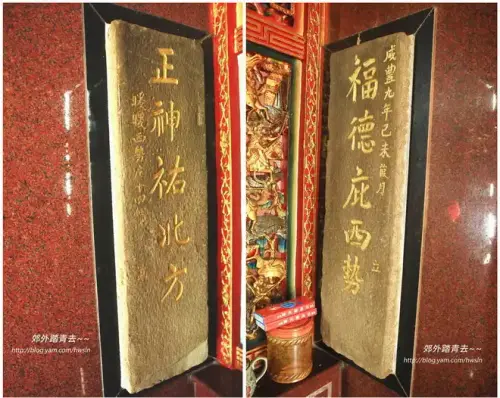 正神祐北方
暖暖西勢十四
郊外踏青去~~
http://blog.yam.com/hwsln
咸豐九年己未葭月
福德庇西勢
立
郊外踏青去~~
http://blog.yam.com/hwsln